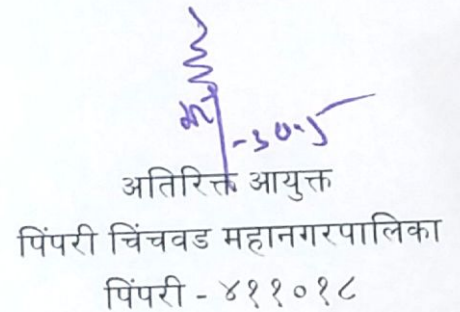 अतिरिक्त आयुक्त
पिंपरी चिंचवड महानगरपालिका
पिंपरी - ४११०१८